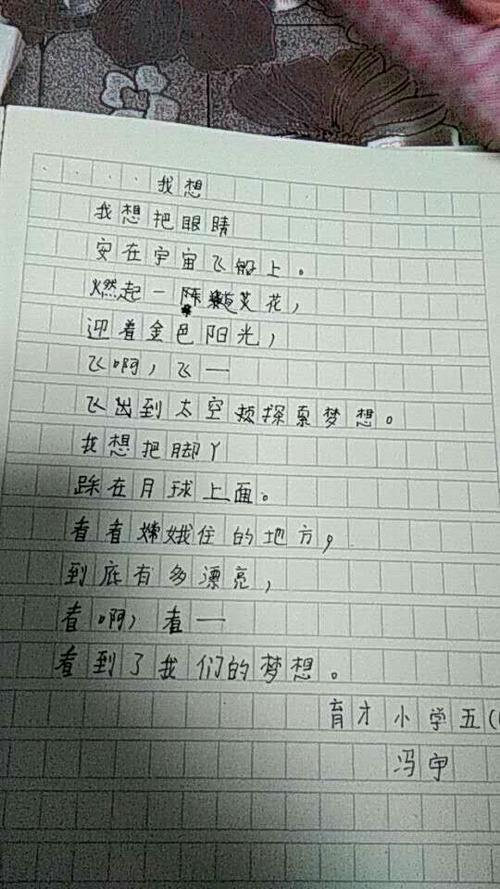 我想
我想把眼睛
安在宇宙飞船上。
燃起一 花,
迎着金色阳光,
飞啊,飞—
飞出到太空 探索梦想。
我想把脚丫
踩在月球上面。
看看嫦娥住的地方,
到底有多漂亮,
看啊,看—
看到了我们的梦想。
育才小学五(
冯宇